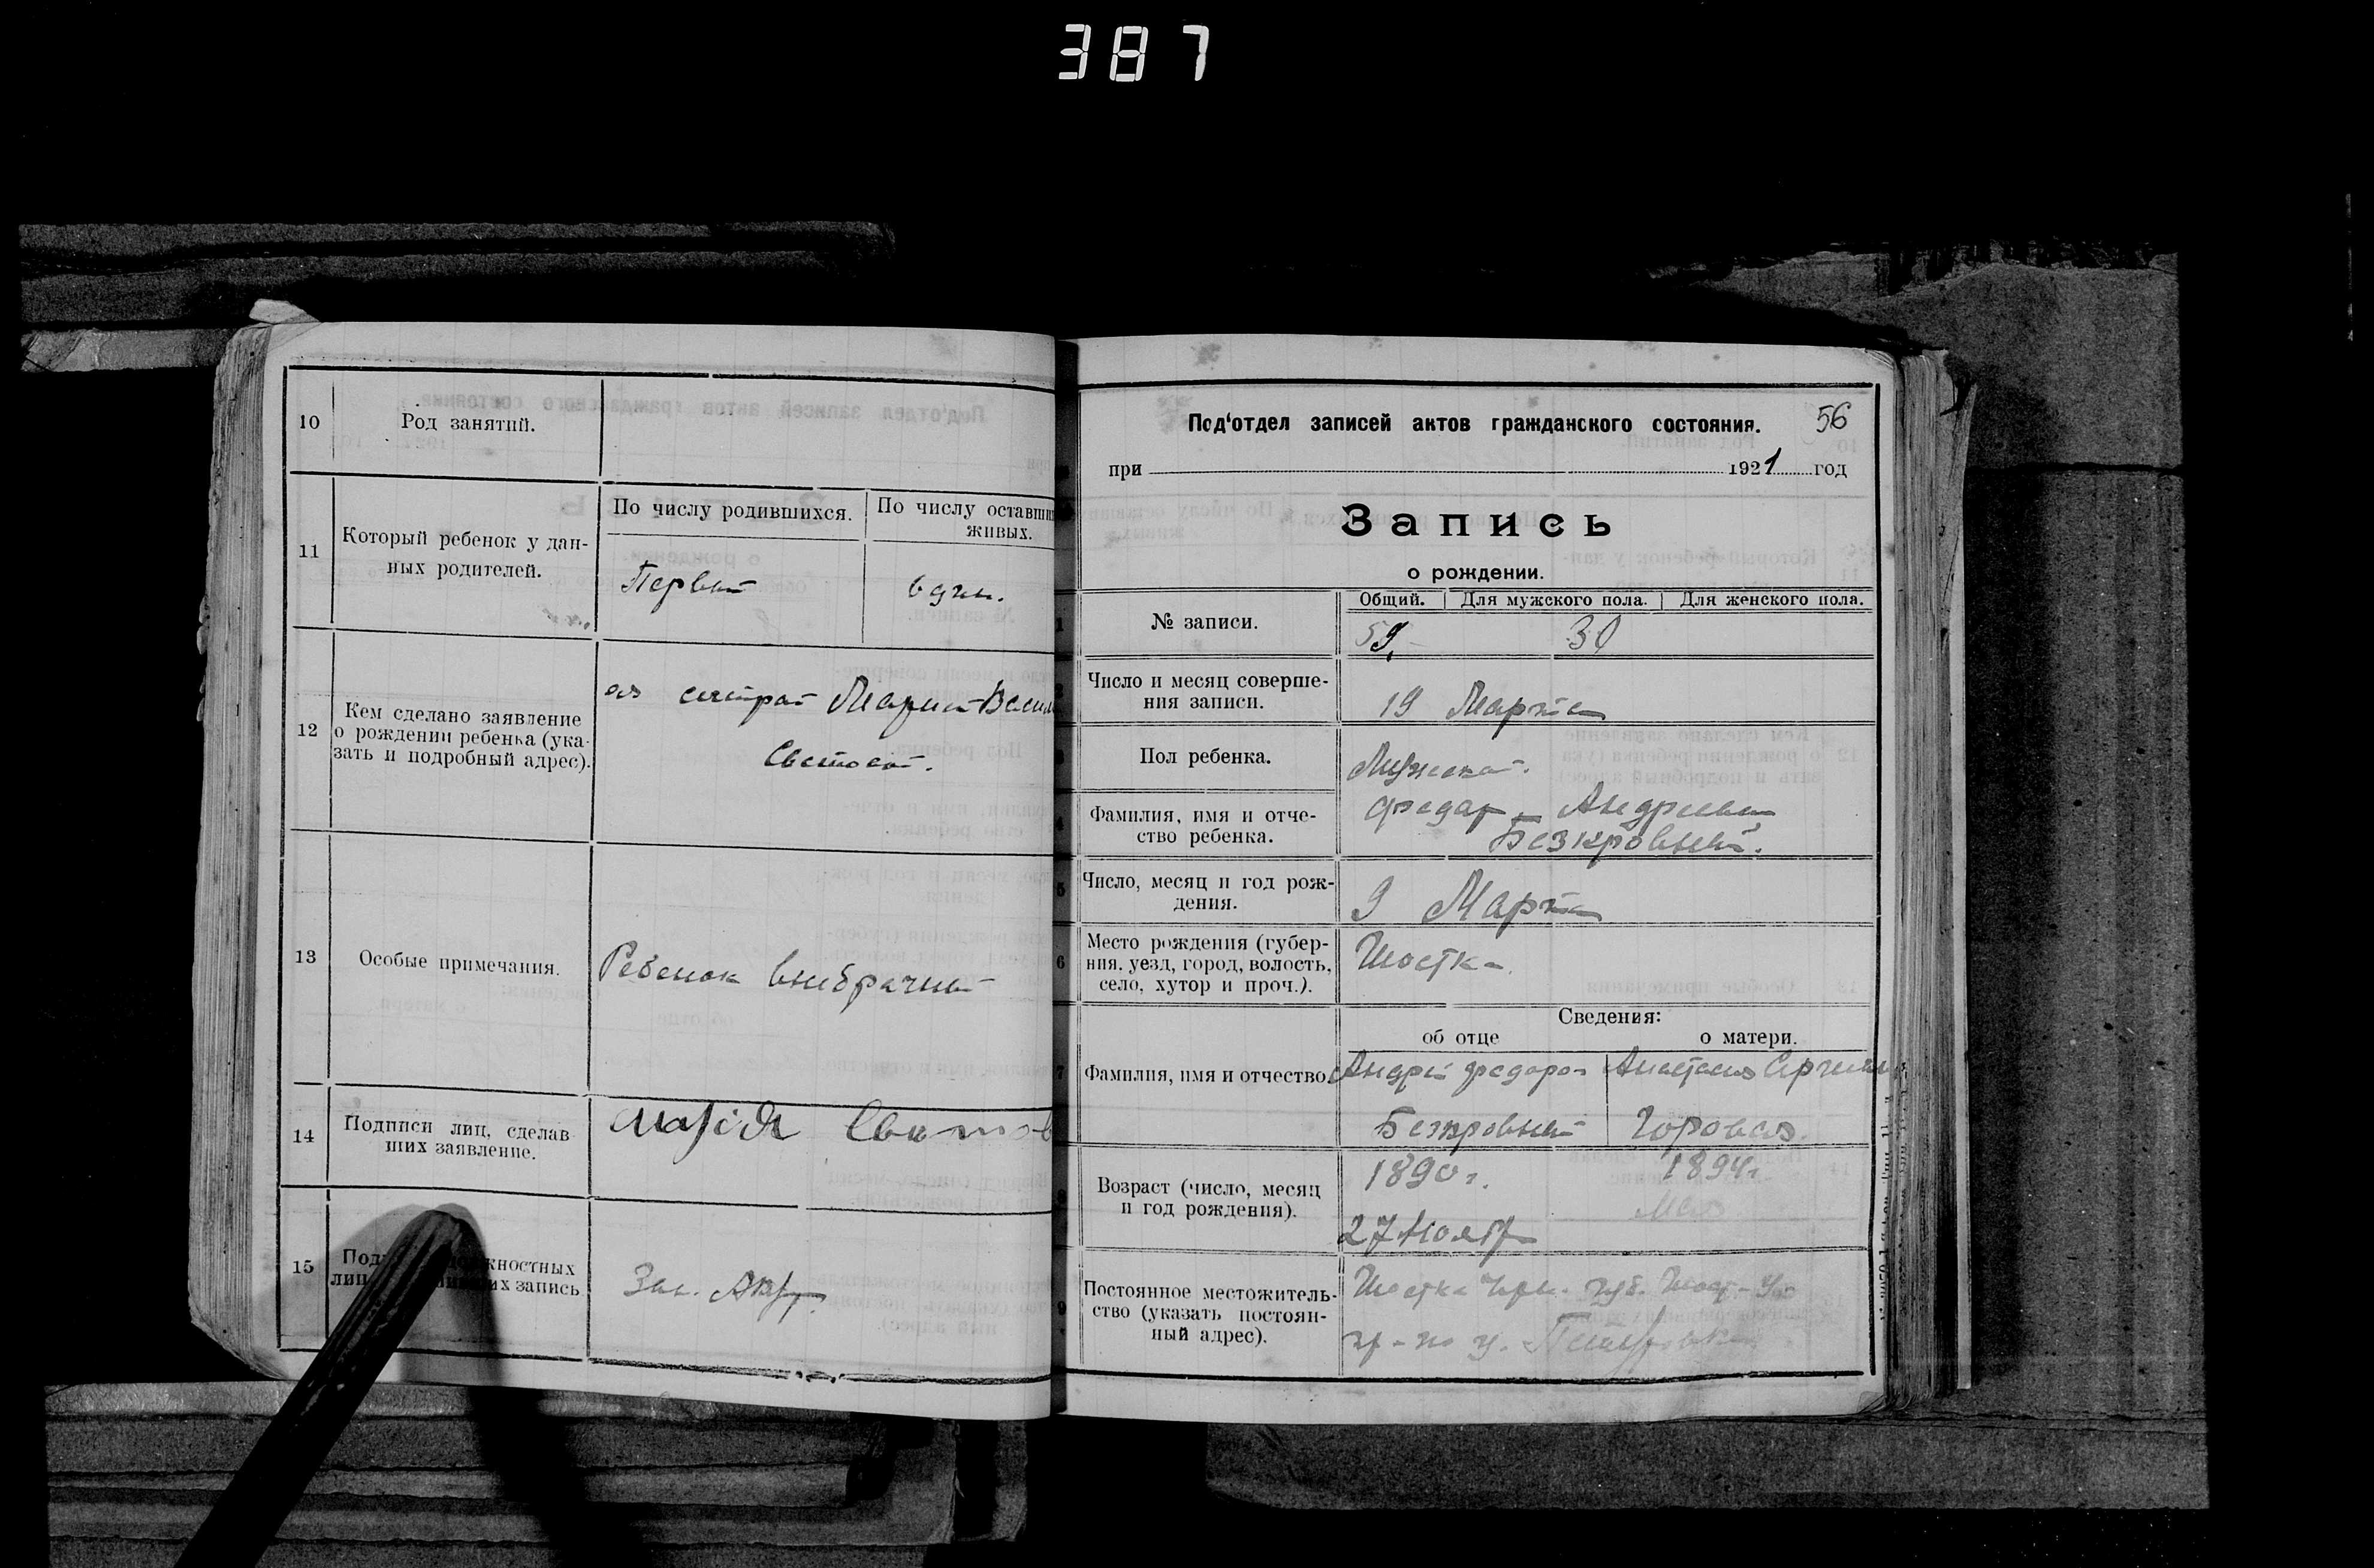 387
10
Род занятий.
11
Который ребенок у дан-
ных родителей.
По числу родившихся.
По числу оставши
живых.
Первый
один.
12
Кем сделано заявление
о рождении ребенка (ука-
зать и подробный адрес).
сестрой Марией
13
Особые примечания.
Ребенок внебрачный
14
Подписи лиц, сделав
ших заявление.
Марія
15
Под жностных
лиц их запись
Зав.
Под'отдел записей актов гражданского состояния.
56
при 1921 год
Запись
о рождении.
№ записи.
Общий. Для мужского пола. Для женского пола.
59 30
Число и месяц соверше-
ния записи.
19 Марта
Пол ребенка.
Мужской.
Фамилия, имя и отче-
ство ребенка.
Федор Андреевич
Безкровный.
Число, месяц и год рож-
дения.
9 Марта
Место рождения (губер-
ния, уезд, город, волость,
село, хутор и проч.).
Шостка
Сведения:
об отце о матери.
Фамилия, имя и отчество.
Андрей Федоров
Безкровный
Анастасия
Горовая.
Возраст (число, месяц
и год рождения).
1890 г.
27 Ноябр
1894 г
Мая
Постоянное местожитель-
ство (указать постоян-
ный адрес).
Шостка Черн. губ. Шост.